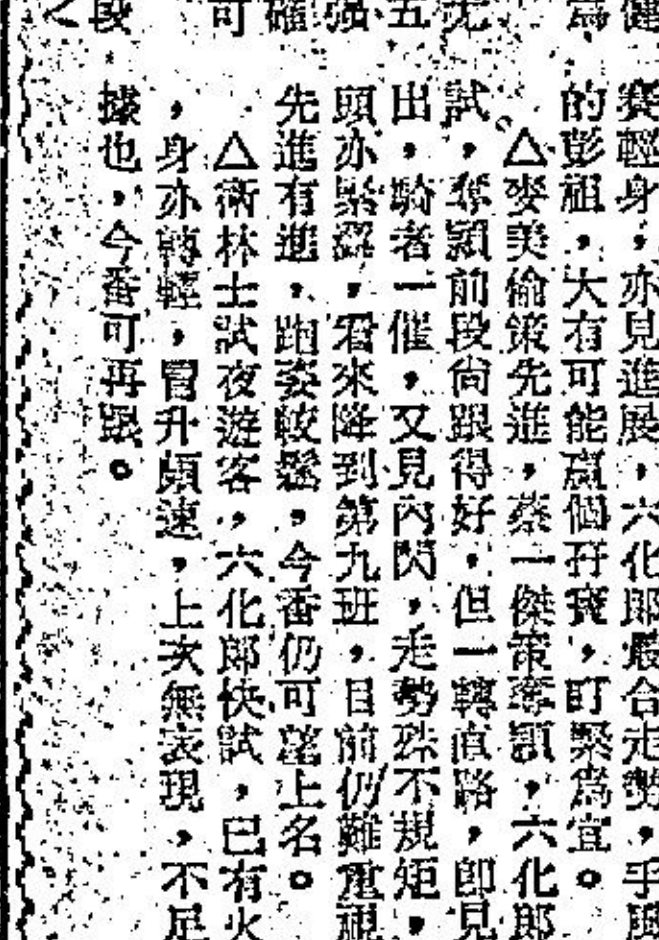 健
賽輕身，亦見進展，六化郎最合走勢，手風
為
的彭祖，大有可能贏個孖寶，盯緊為宜。
△麥美倫策先進，蔡一傑策奪穎，六化郎
尤
試，奪穎前段尚跟得好，但一轉直路，即見
五
出，騎者一催，又見內閃，走勢殊不規矩，
強
頭亦緊湊，看來降到第九班，目前仍難重視
確
先進有進，跑姿較鬆，今番仍可望上名。
可
△衛林士試夜遊客，六化郎快試，已有火
，身亦轉輕，冒升頗速，上次無表現，不足
段
據也，今番可再跟。